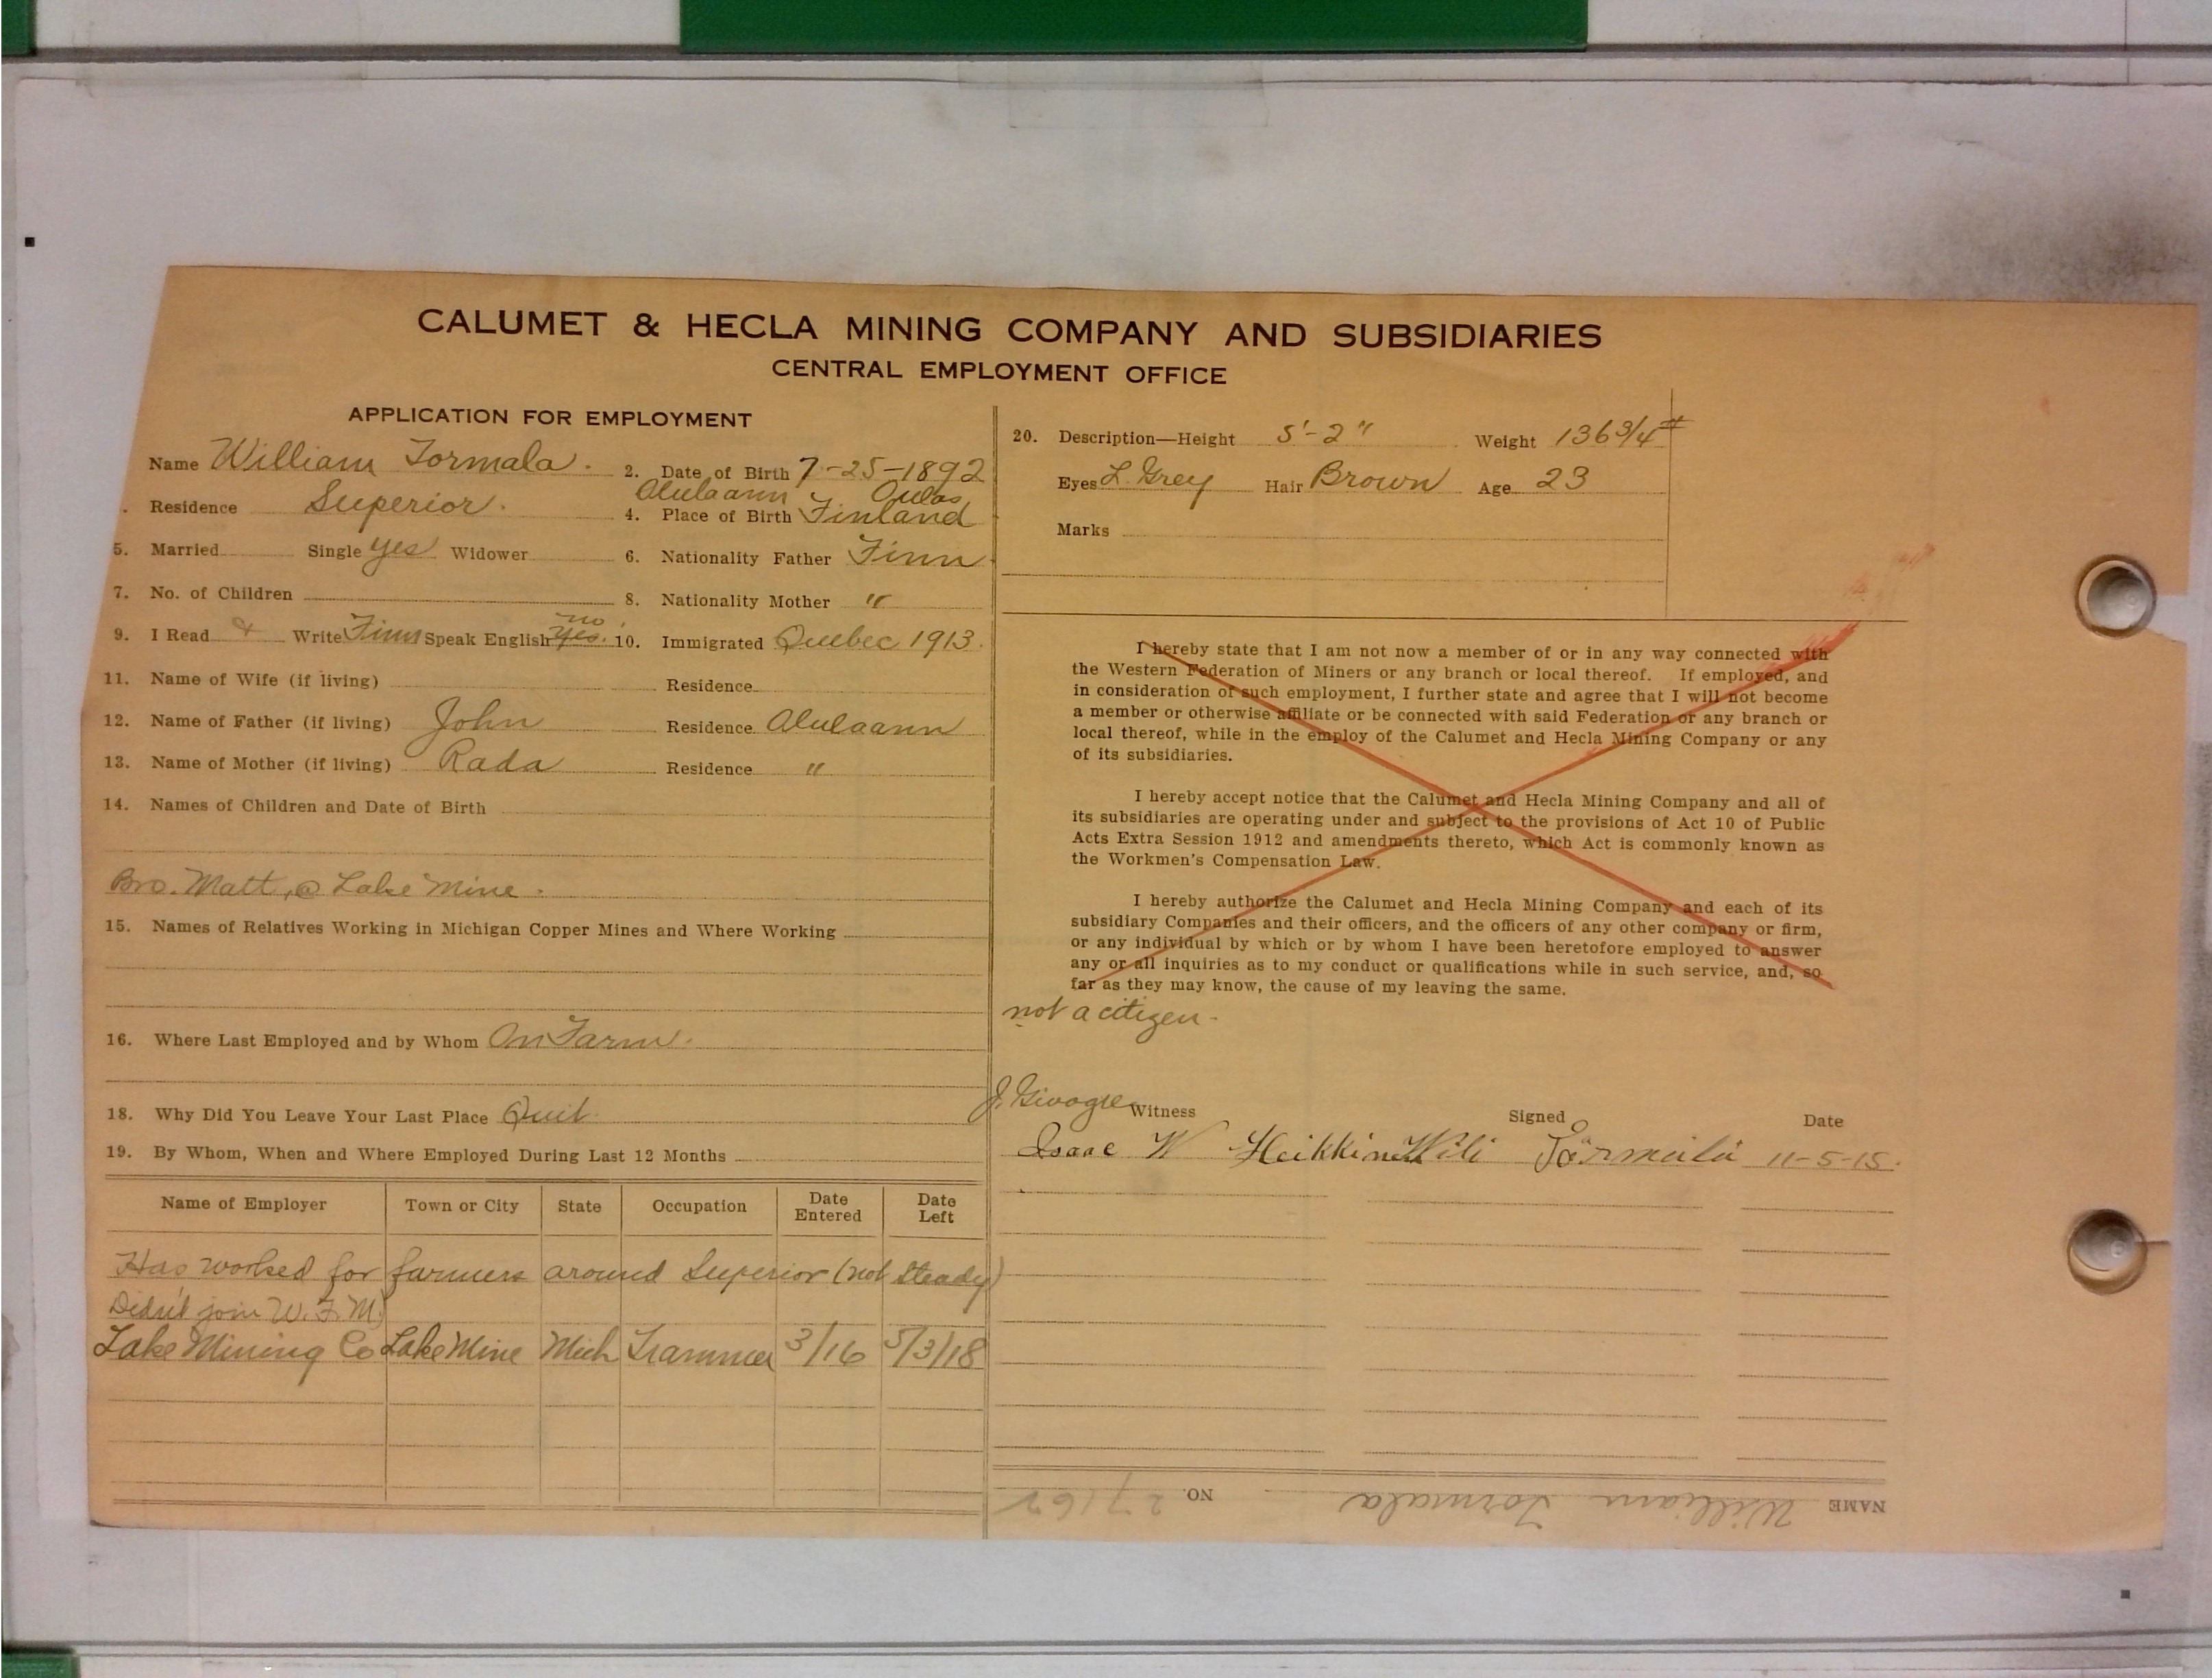 CALUMET & HECLA MINING COMPANY AND SUBSIDIARIES
CENTRAL EMPLOYMENT OFFICE
APPLICATION FOR EMPLOYMENT
Name William Tormala. 2. Date of Birth 7-25-1892
. Residence Superior. 4. Place of Birth Alulaann Oulas Finland
5. Married Single yes Widower 6. Nationality Father Finn
7. No. of Children 8. Nationality Mother "
9. I Read & Write Finn Speak English yes. no. 10. Immigrated Quebec 1913.
11. Name of Wife (if living) Residence
12. Name of Father (if living) John Residence Alulaann
13. Name of Mother (if living) Rada Residence "
14. Names of Children and Date of Birth
Bro. Matt, @ Lake Mine.
15. Names of Relatives Working in Michigan Copper Mines and Where Working
16. Where Last Employed and by Whom On Farm.
18. Why Did You Leave Your Last Place Quit
19. By Whom, When and Where Employed During Last 12 Months
Name of Employer Town or City State Occupation Date Entered Date Left
Has worked for farmers around Superior (not steady)
Didn't join W.F.M.
Lake Mining Co Lake Mine Mich Trammer 3/16 5/3/18
20. Description—Height 5'-2" Weight 136 3/4 #
Eyes L. Grey Hair Brown Age 23
Marks
I hereby state that I am not now a member of or in any way connected with
the Western Federation of Miners or any branch or local thereof. If employed, and
in consideration of such employment, I further state and agree that I will not become
a member or otherwise affiliate or be connected with said Federation or any branch or
local thereof, while in the employ of the Calumet and Hecla Mining Company or any
of its subsidiaries.
I hereby accept notice that the Calumet and Hecla Mining Company and all of
its subsidiaries are operating under and subject to the provisions of Act 10 of Public
Acts Extra Session 1912 and amendments thereto, which Act is commonly known as
the Workmen's Compensation Law.
I hereby authorize the Calumet and Hecla Mining Company and each of its
subsidiary Companies and their officers, and the officers of any other company or firm,
or any individual by which or by whom I have been heretofore employed to answer
any or all inquiries as to my conduct or qualifications while in such service, and, so
far as they may know, the cause of my leaving the same.
not a citizen.
J. Witness Signed Date
Isaac W Heikkinen Wili Törmälä 11-5-15.
NAME William Tormala NO. 27162